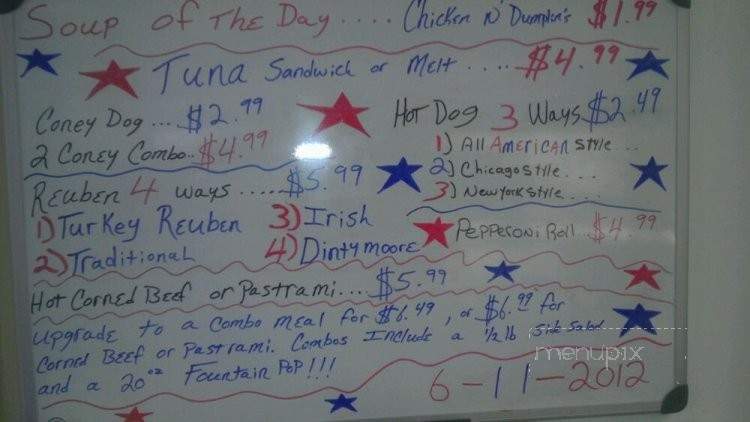 Soup of The Day .... Chicken N' Dumplin's $1.99
Tuna Sandwich or Melt .... $4.99
Coney Dog ... $2.99
2 Coney Combo.. $4.99
Hot Dog 3 Ways $2.49
1) All American Style ...
2) Chicago Style ....
3) New York Style ....
Reuben 4 ways ..... $5.99
1) Turkey Reuben
2) Traditional
3) Irish
4) Dintymoore
Pepperoni Roll ... $4.99
Hot Corned Beef or Pastrami .... $5.99
upgrade to a combo meal for $6.49, or $6.99 for
Corned Beef or Pastrami. Combos Include a 1/2 lb Side Salad
and a 20oz Fountain Pop!!!
6-11-2012
menupix